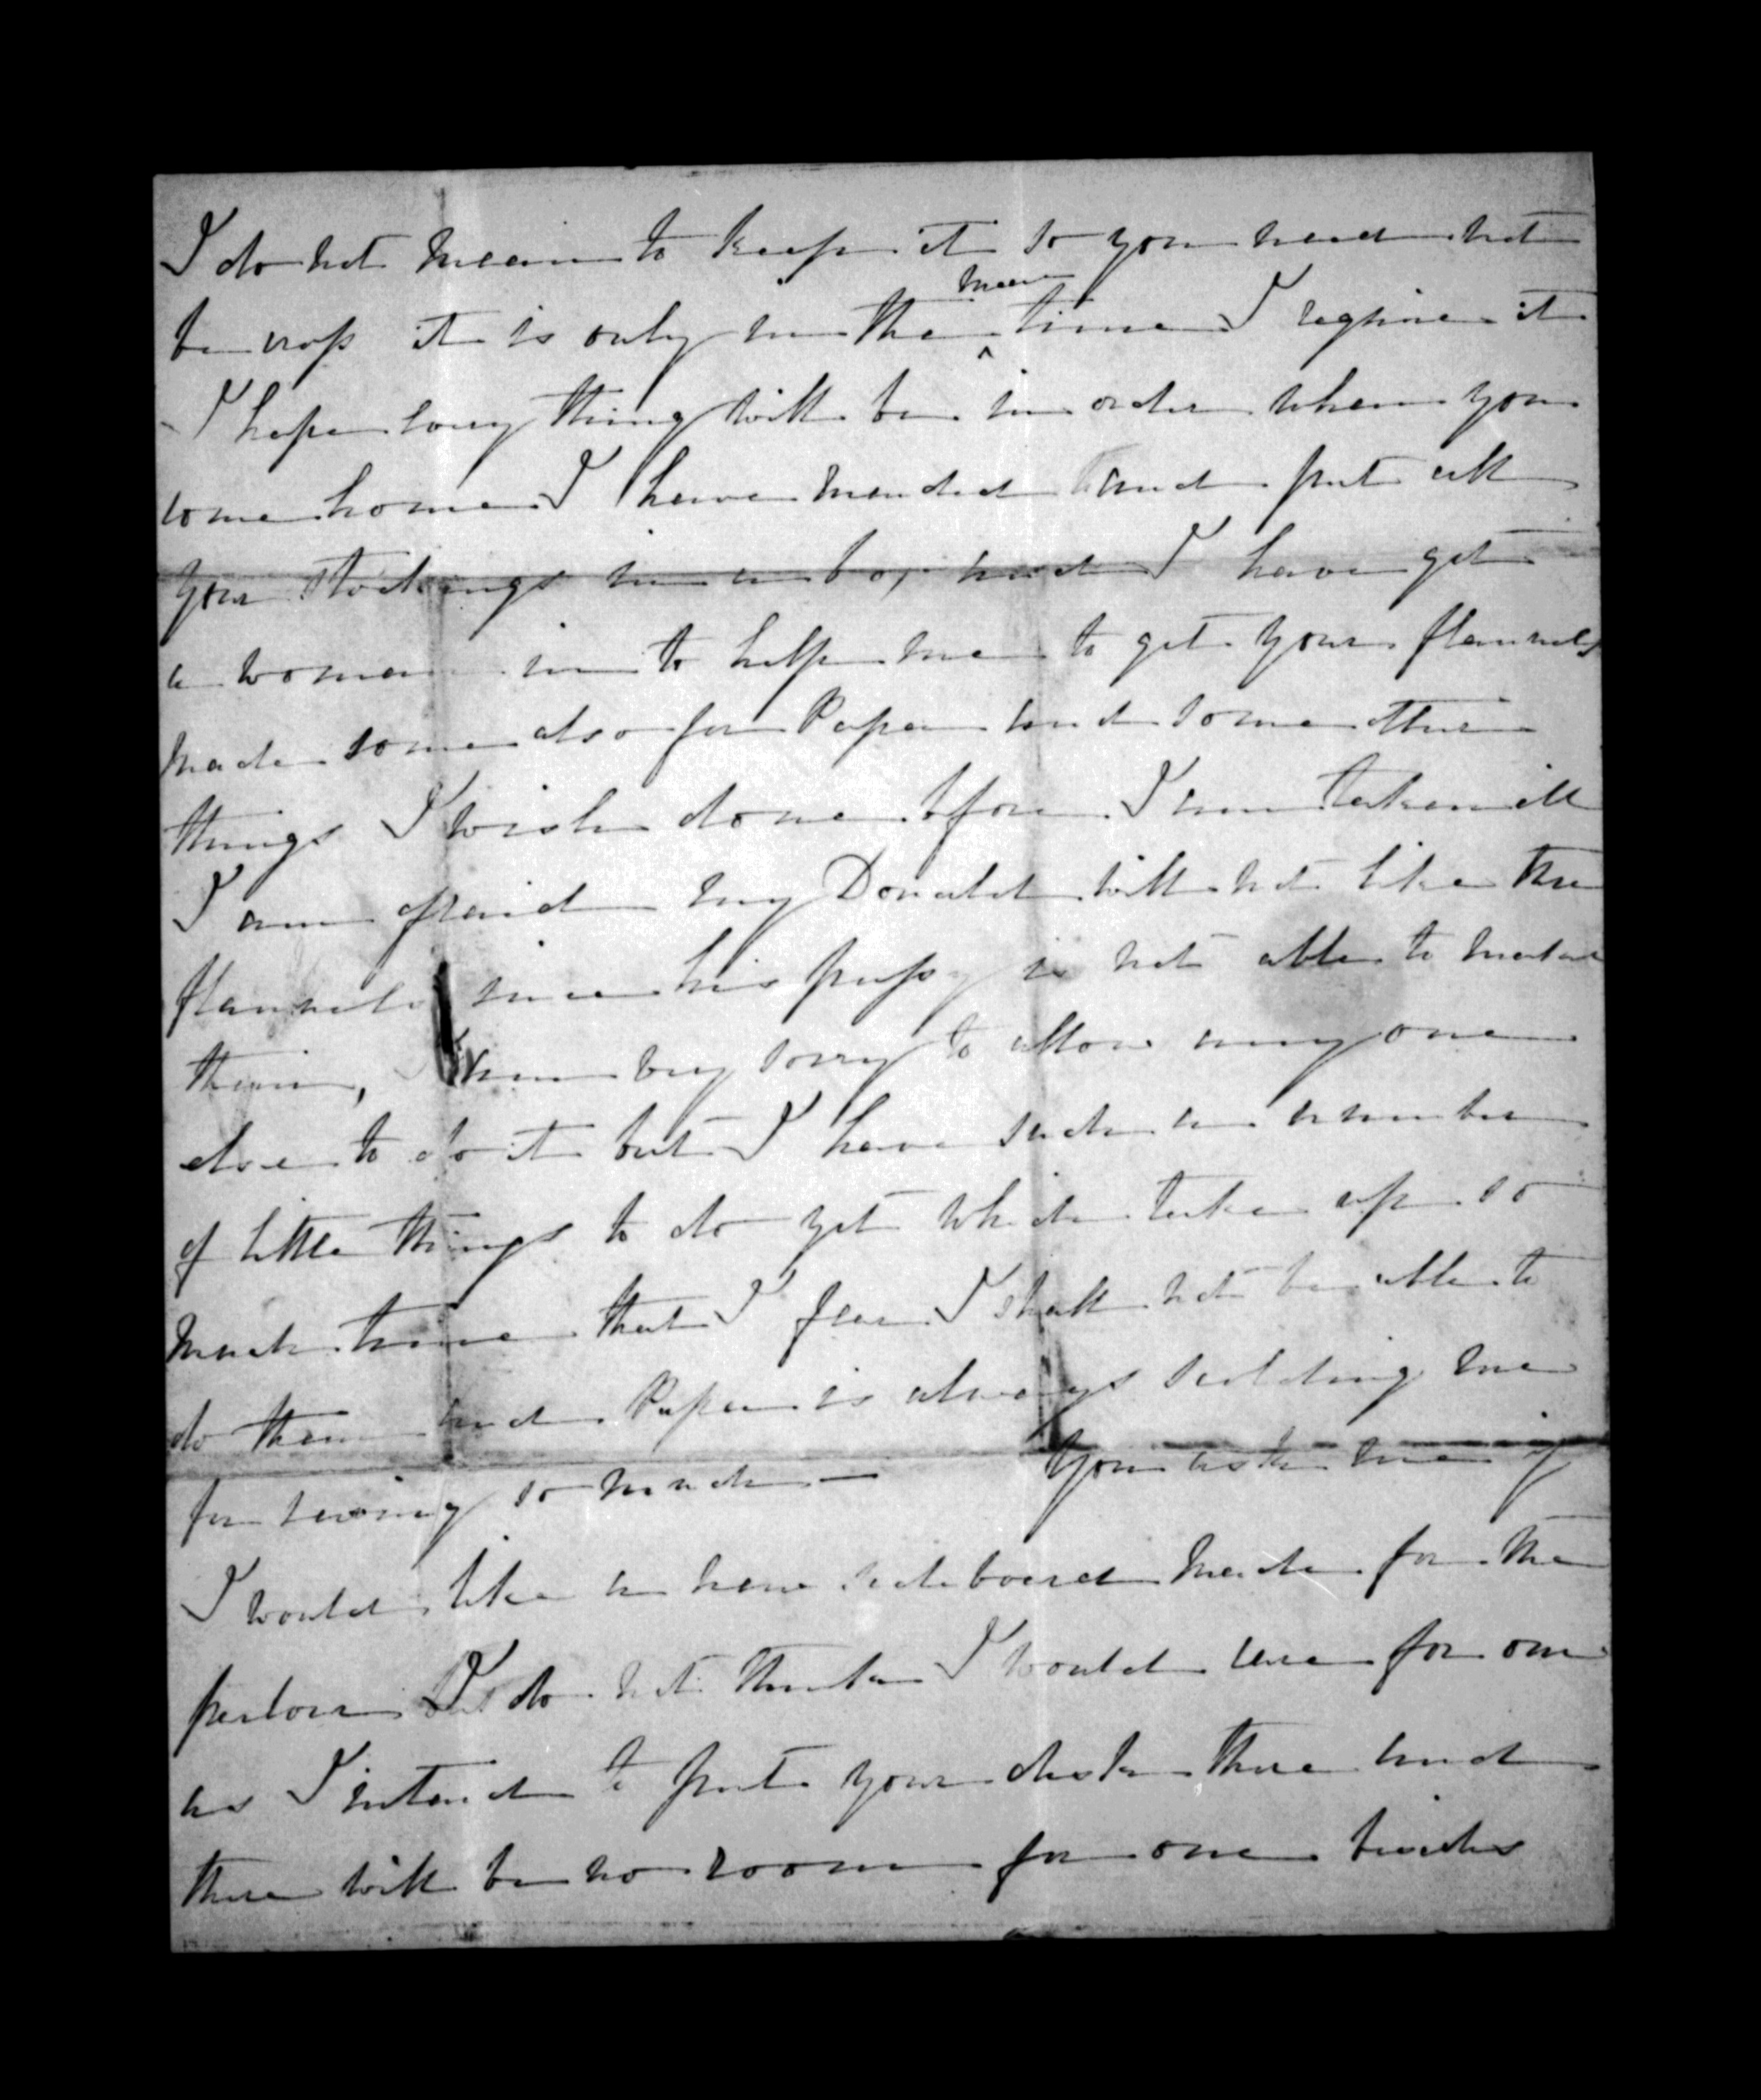 I do not mean to keep it so you need not
be cross it is only in the mean time I require it
- I hope every thing will be in order when you
come home I have mended and put all
your stockings in a box and I have got
a woman in to help me to get your flannels
made some also for Papa and some other
things I wish done before I am taken ill
I am afraid my Donald will not like the
flannels since his pussy is not able to make
them, I am very sorry to allow any one
else to do it but I have such a number
of little things to do yet which take up so
much time that I fear I shall not be able to
do them and Papa is always scolding me
for sewing so much — You ask me if
I would like a new sideboard made for the
parlour I do not think I would care for one
as I intend to put your desk there and
there will be no room for one besides